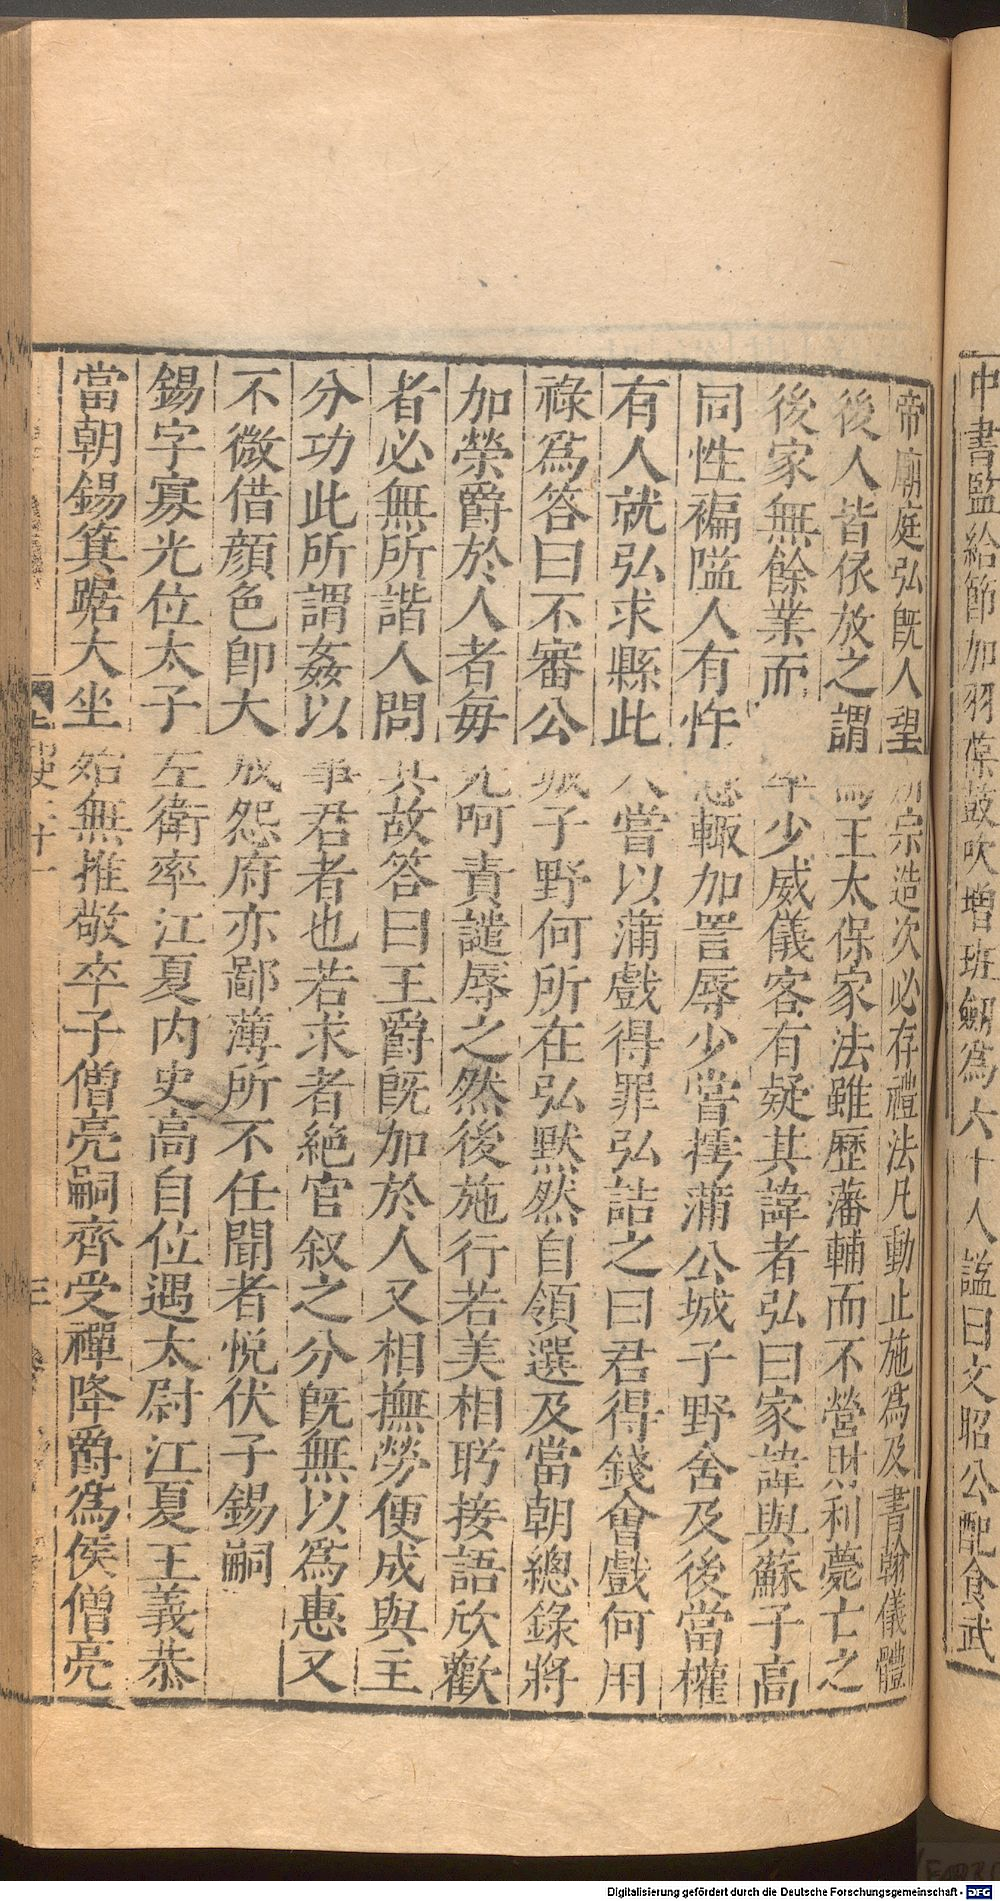 中書監給節加羽葆鼓吹增班劍爲六十人謚曰文昭公配食武
帝廟庭弘旣人望所宗造次必存禮法凡動止施爲及書翰儀體
後人皆依放之謂爲王太保家法雖歷藩輔而不營財利薨亡之
後家無餘業而率少威儀客有疑其諱者弘曰家諱與蘇子高
同性褊隘人有忤意輙加詈辱少嘗摴蒲公城子野舍及後當權
有人就弘求縣此人嘗以蒲戲得罪弘詰之曰君得錢會戲何用
祿爲答曰不審公城子野何所在弘默然自領選及當朝總錄將
加榮爵於人者毎先呵責譴辱之然後施行若美相盻接語欣歡
者必無所諧人問其故答曰王爵旣加於人又相撫勞便成與主
分功此所謂姦以事君者也若求者絶官叙之分旣無以爲惠又
不微借顏色卽大成怨府亦鄙薄所不任聞者悅伏子錫嗣
錫字寡光位太子左衛率江夏内史高自位遇太尉江夏王義恭
當朝錫箕踞大坐殆無推敬卒子僧亮嗣齊受禪降爵爲侯僧亮
史二十一
三
Digitalisierung gefördert durch die Deutsche Forschungsgemeinschaft - DFG